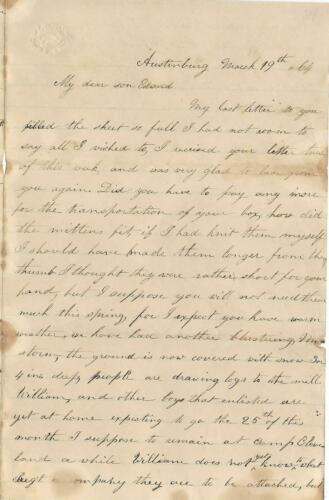 Austinburg March 19th 64
My dear son Edwd
My last letter to you
filled the sheet so full I had not room to
say all I wished to, I received your letter
of this week, and was very glad to hear from
you again. Did you have to pay any more
for the transportation of your box, how did
the mittens fit, if I had knit them myself
I should have made them longer from the
thumb I thought they were rather short for your
hand, but I suppose you will not need them
much this spring, for I expect you have warm
weather, we have had another blustering
storm, the ground is now covered with snow
4 ins deep, people are drawing logs to the mill
William, and other boys that enlisted are
yet at home expecting to go the 25th of this
month I suppose to remain at camp Cleve
land a while William does not yet know to what
regt or company they are to be attached, but